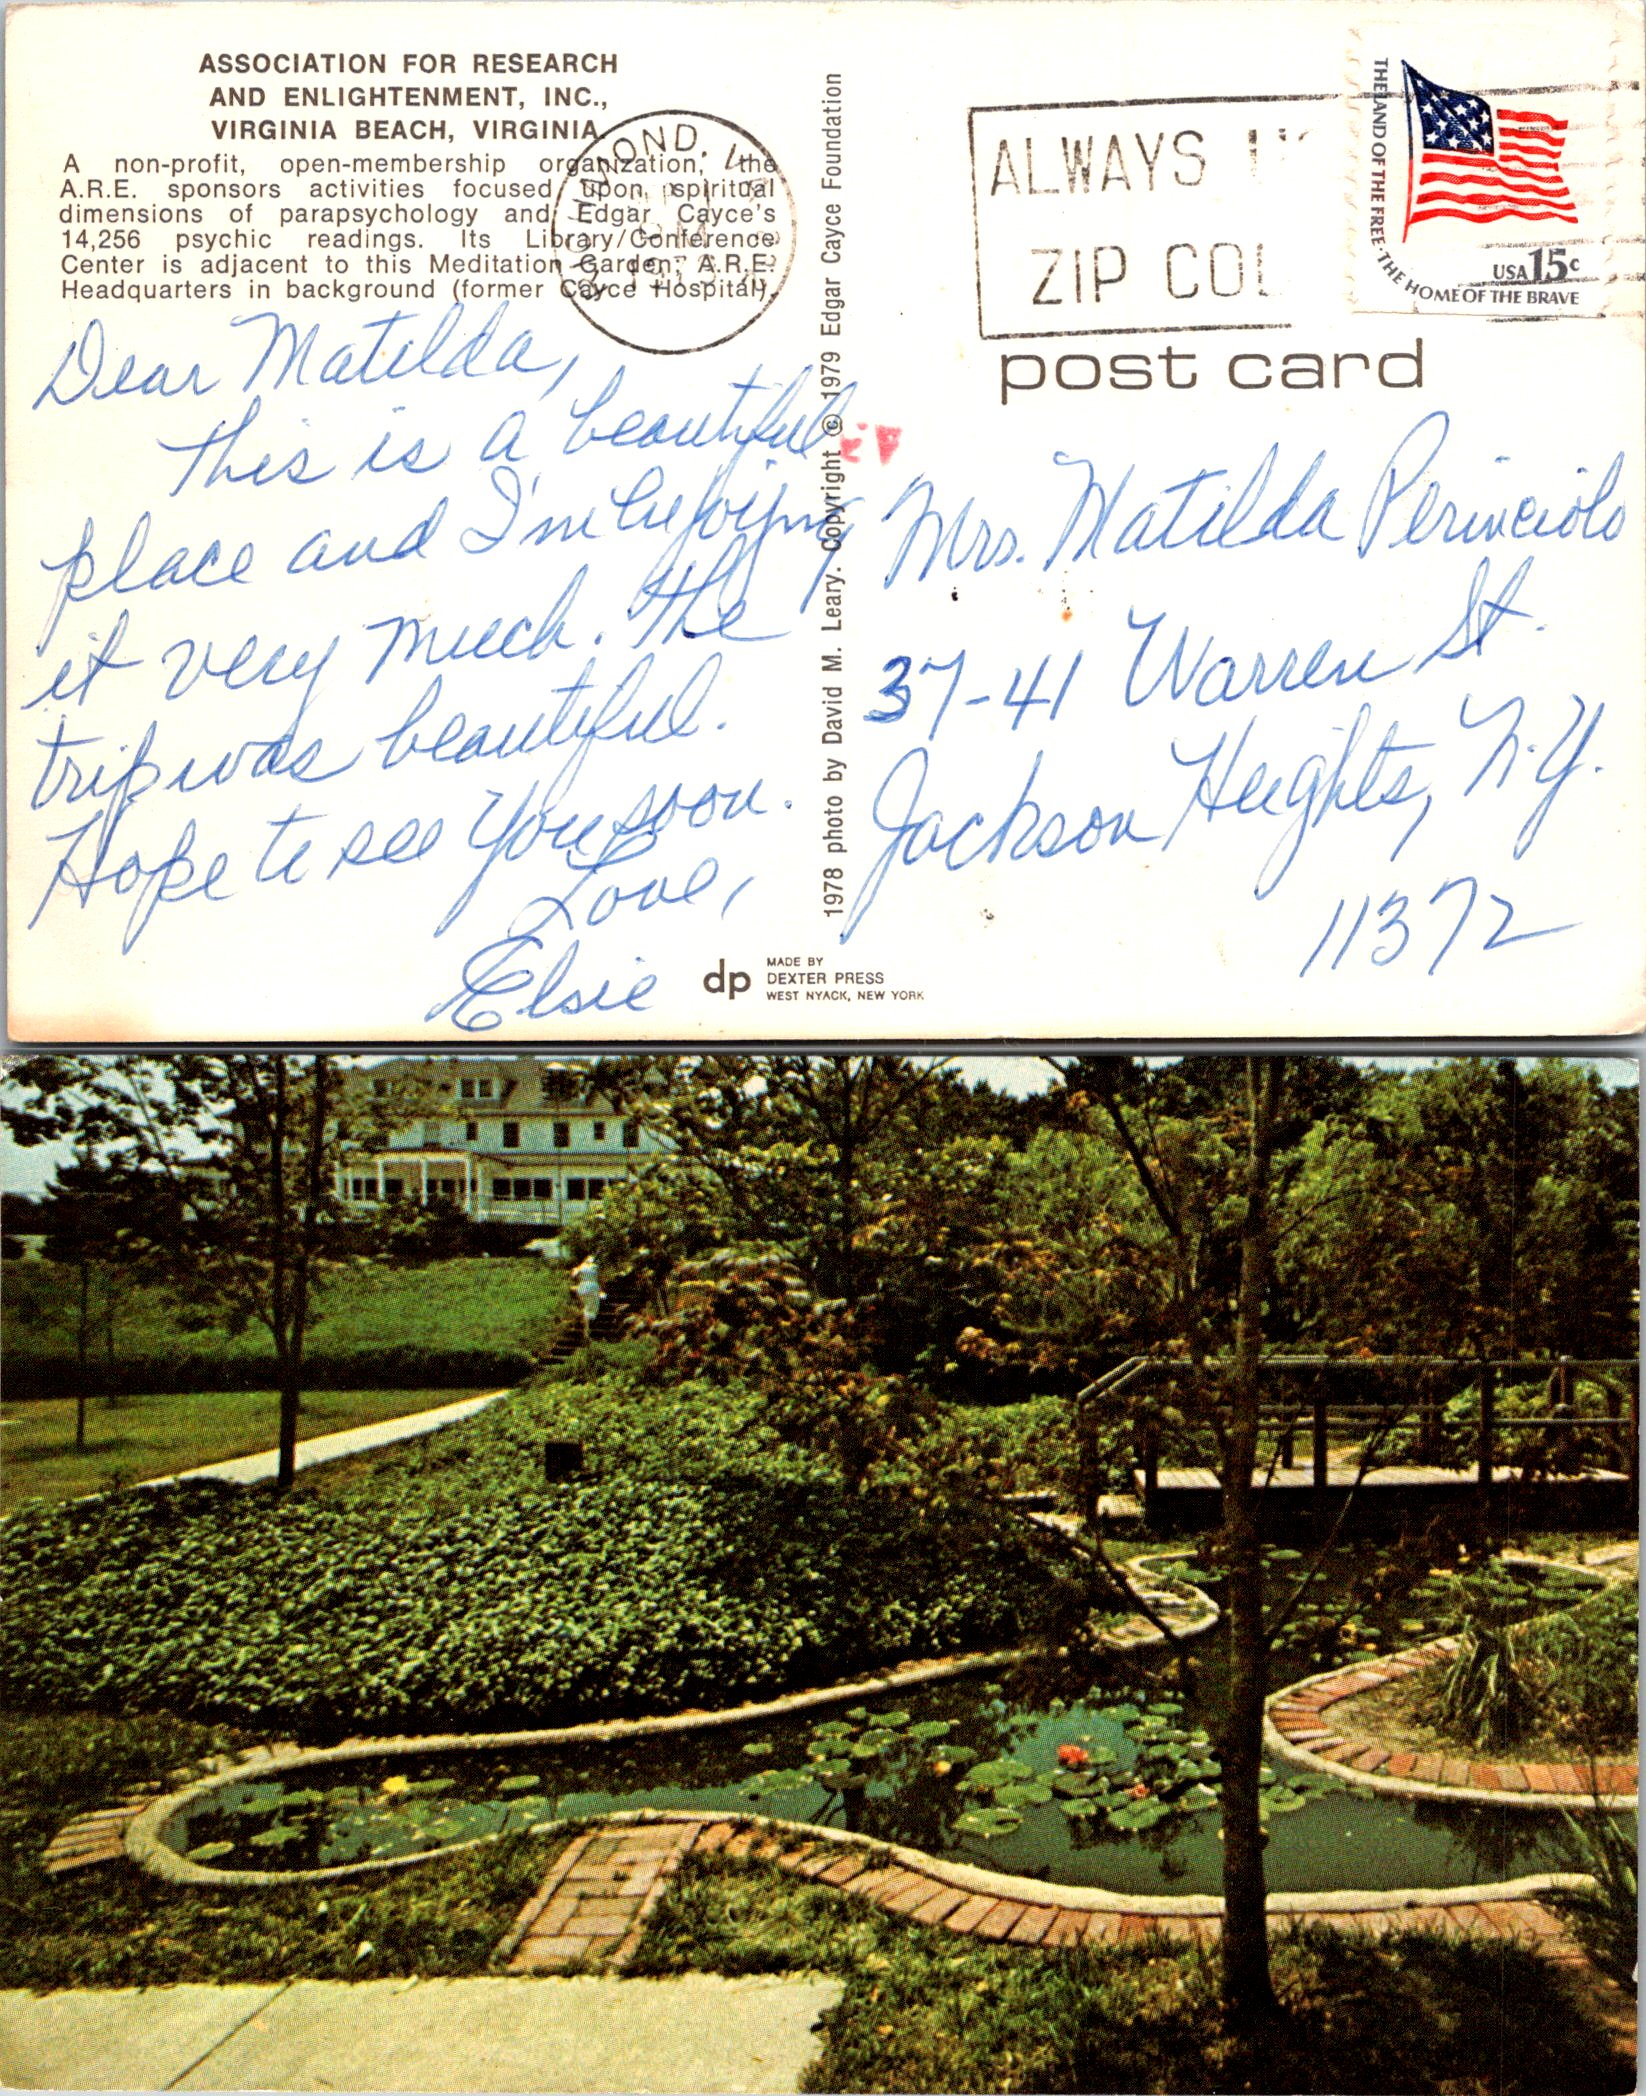 ASSOCIATION FOR RESEARCH
AND ENLIGHTENMENT, INC.,
VIRGINIA BEACH, VIRGINIA
A non-profit, open-membership organization, the
A.R.E. sponsors activities focused upon spiritual
dimensions of parapsychology and Edgar Cayce's
14,256 psychic readings. Its Library/Conference
Center is adjacent to this Meditation Garden; A.R.E.
Headquarters in background (former Cayce Hospital).
Dear Matilda,
This is a beautiful
place and I'm enjoying
it very much. The
trip was beautiful.
Hope to see you soon.
Love,
Elsie
1978 photo by David M. Leary. Copyright © 1979 Edgar Cayce Foundation
dp
MADE BY
DEXTER PRESS
WEST NYACK, NEW YORK
RICHMOND,
ALWAYS
ZIP
THE LAND OF THE FREE · THE HOME OF THE BRAVE
USA 15c
post card
Mrs. Matilda Perinciolo
37-41 Warren St.
Jackson Heights, N.Y.
11372